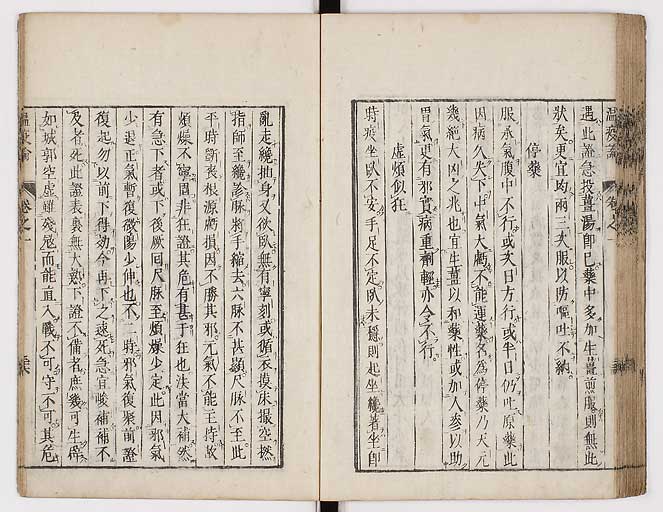 遇此證急投薑湯卽已藥中多加生薑煎服則無此
狀矣更宜均兩三次服以防嘔吐不納
停藥
服承氣腹中不行或次日方行或半日仍吐原藥此
因病久失下中氣大虧不能運藥名爲停藥乃天元
幾絕大凶之兆也宜生薑以和藥性或加人參以助
胃氣更有邪實病重劑輕亦令不行
虛煩似狂
時疫坐臥不安手足不定臥未穩則起坐纔著坐卽
亂走纔抽身又欲臥無有寧刻或循衣摸床撮空撚
指師至纔診脉將手縮去六脉不甚顯尺脉不至此
平時斵丧根源虧損因不勝其邪元氣不能主持故
煩燥不寧固非狂證其危有甚于狂也法當大補然
有急下者或下後厥回尺脉至煩燥少定此因邪氣
少退正氣暫復微陽少伸也不二時邪氣復聚前證
復起勿以前下得効今再下之速死急宜峻補補不
及者死此證表裏無大熱下證不備者庶幾可生僻
如城郭空虛雖殘寇而能直入戰不可守不可其危
溫疫論 卷之一